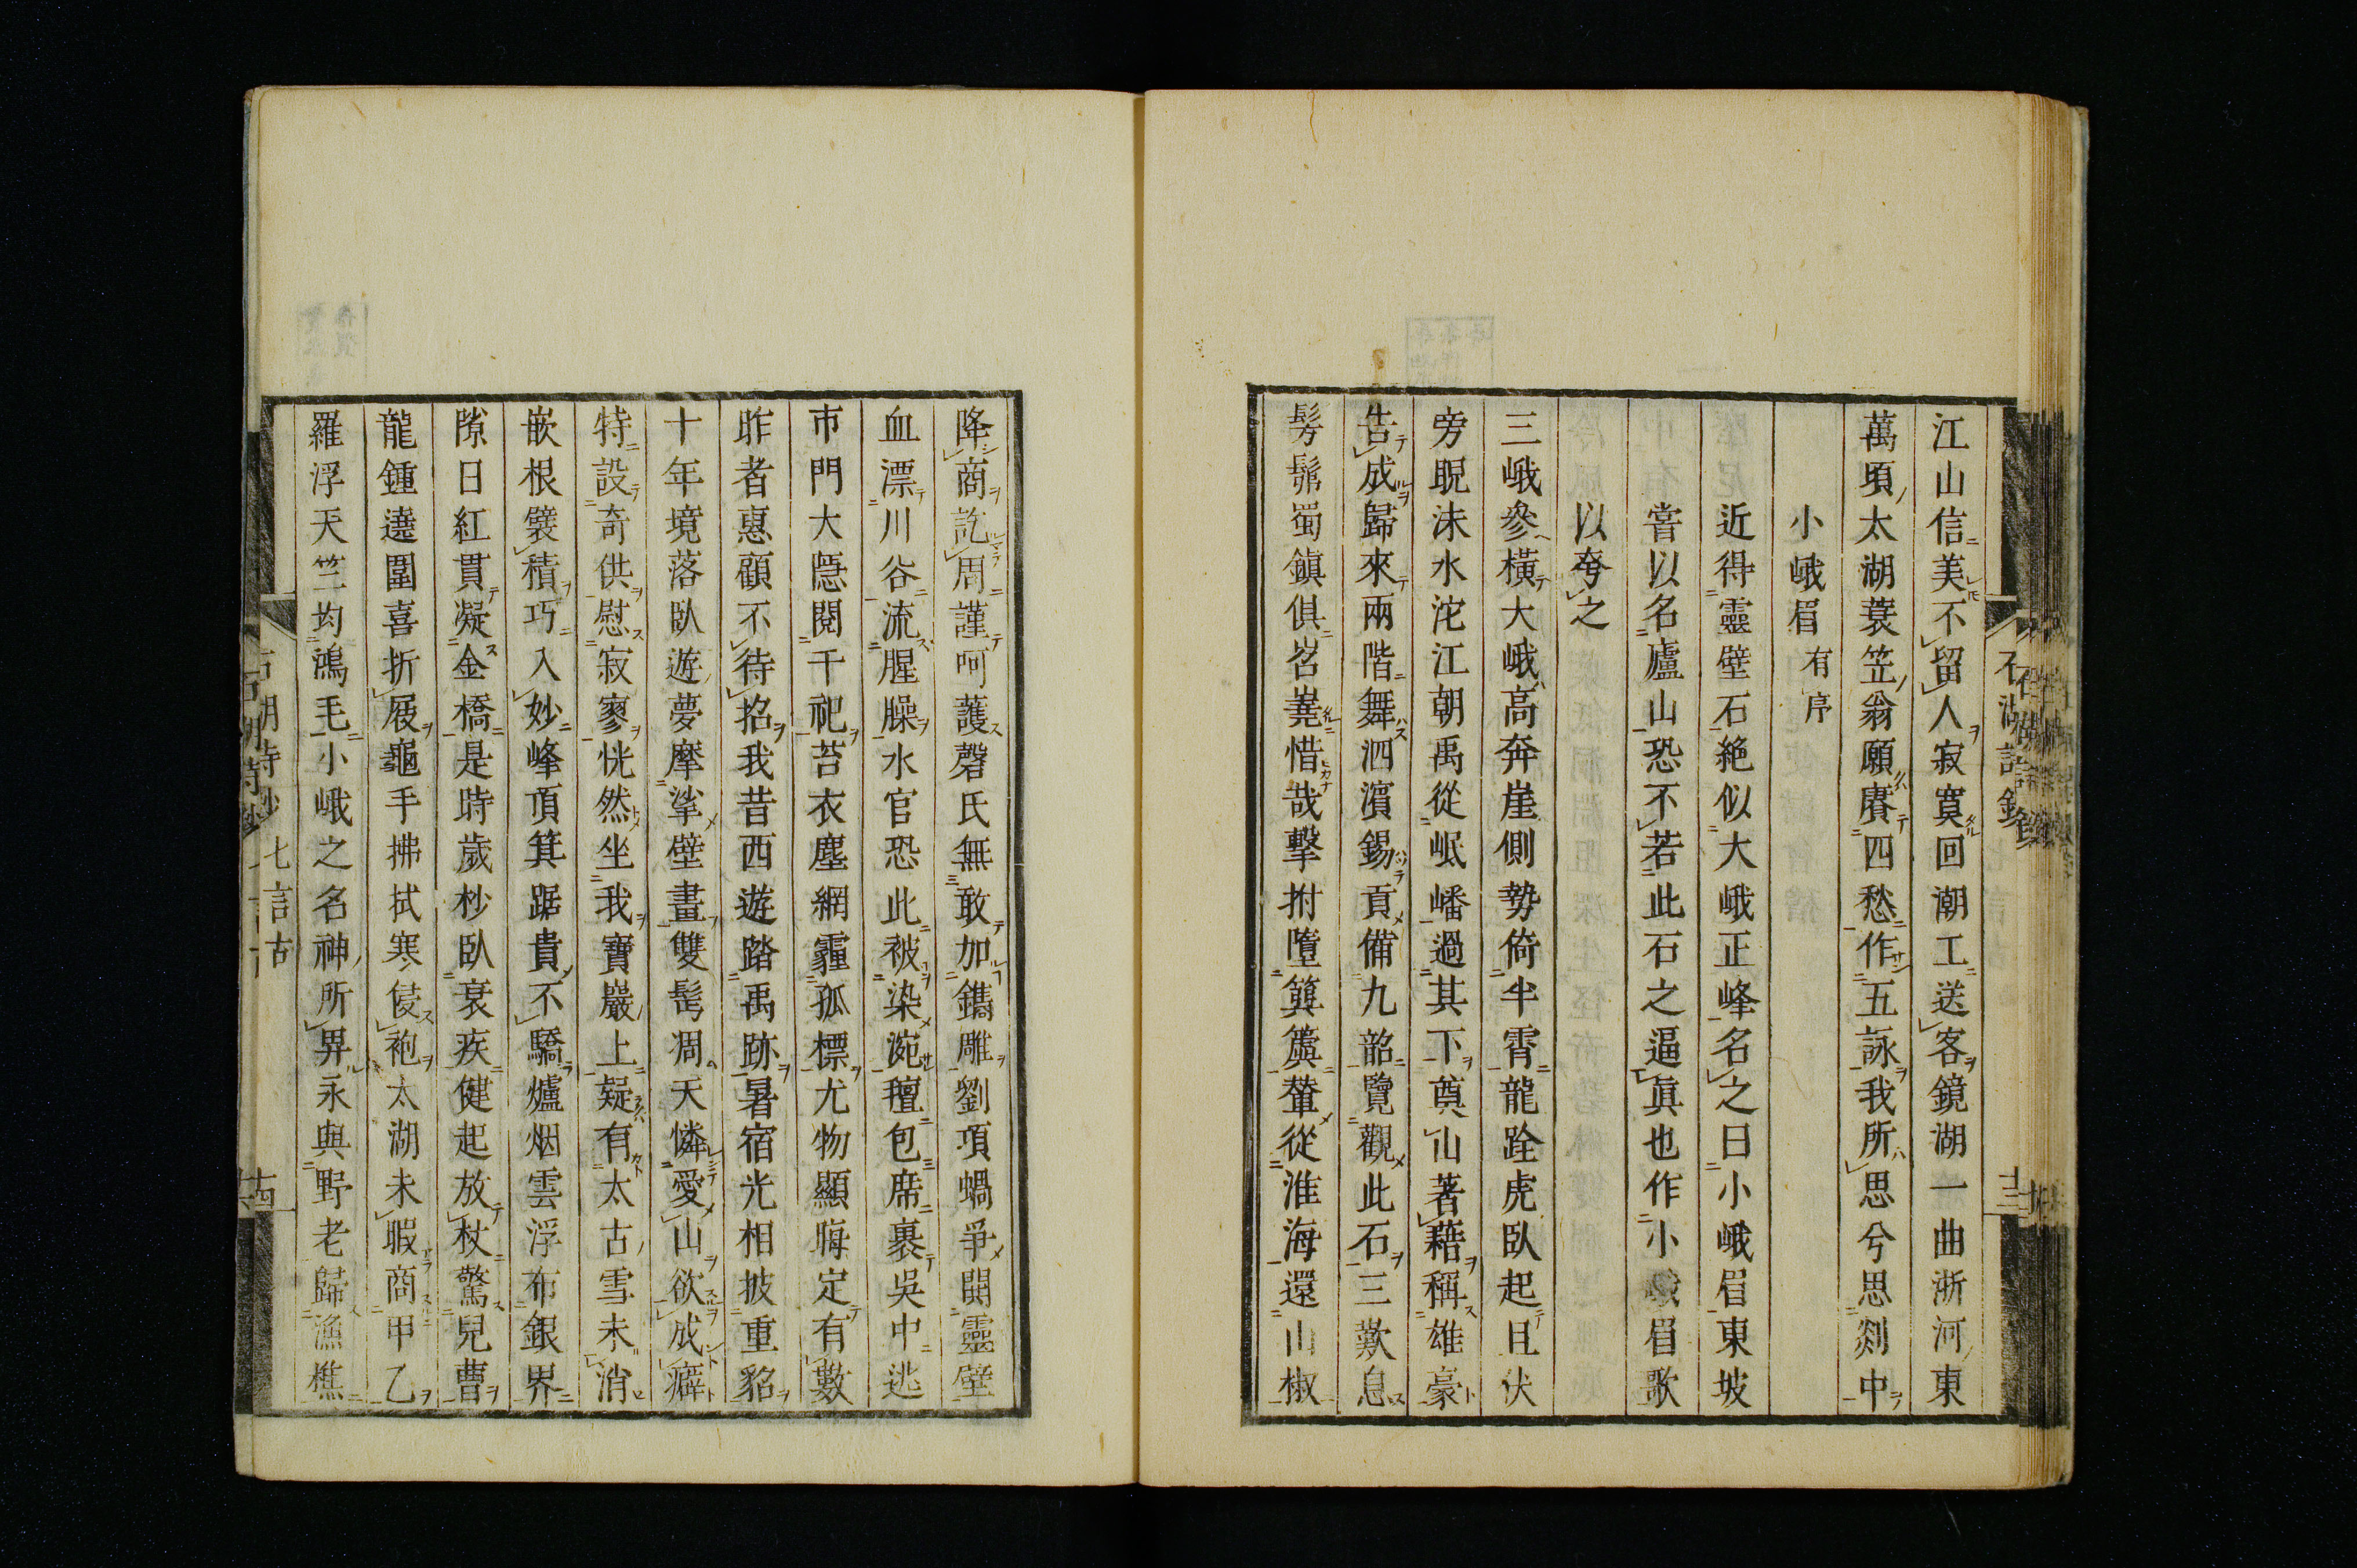 江山信美不留人寂寞回潮工送客鏡湖一曲浙河東
萬頃太湖蓑笠翁願賡四愁作五詠我所思兮思剡中
小峨眉有序
近得靈壁石絕似大峨正峰名之曰小峨眉東坡
嘗以名廬山恐不若此石之逼眞也作小峨眉歌
以夸之
三峨參橫大峨高奔崖側勢倚半霄龍跧虎臥起且伏
旁睨沫水沱江朝禹從岷嶓過其下奠山著藉稱雄豪
告成歸來兩階舞泗濱錫貢備九韶覽觀此石三歎息
髣髴蜀鎭俱岧嶤惜哉擊拊墮簨簴輦從淮海還山椒
降商訖周謹呵護磬氏無敢加鐫雕劉項蝸爭開靈壁
血漂川谷流腥臊水官恐此被染涴氊包席裹吳中逃
市門大隱閱千祀苔衣塵網霾孤標尤物顯晦定有數
昨者惠顧不待招我昔西遊踏禹跡暑宿光相披重貂
十年境落臥遊夢摩挲壁畫雙髩凋天憐愛山欲成癖
特設奇供慰寂寥恍然坐我寶巖上疑有太古雪未消
嵌根襞積巧入妙峰頂箕踞貴不驕爐烟雲浮布銀界
隙日紅貫凝金橋是時歲杪臥衰疾健起放杖驚兒曹
龍鍾遶圍喜折屐龜手拂拭寒侵袍太湖未暇商甲乙
羅浮天竺均鴻毛小峨之名神所畀永與野老歸漁樵
石湖詩鈔
七言古
十四